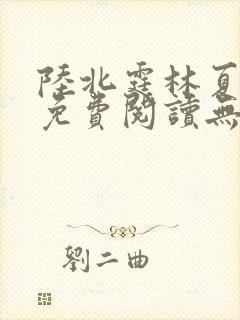 陸北霆林夏
免費閱讀無
劉二曲